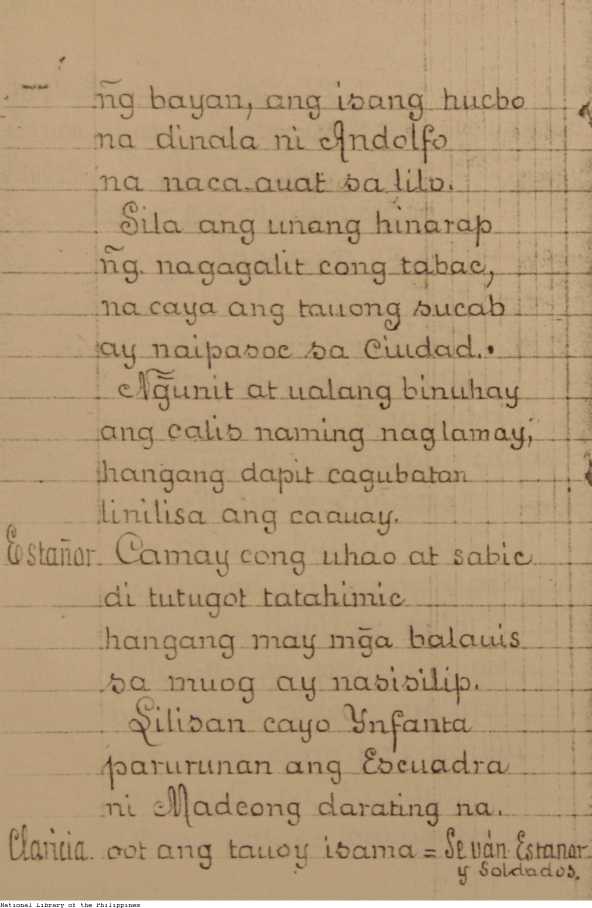 n͠g bayan, ang isang hucbo
na dinala ni Andolfo
na naca.auat sa lilo.
Sila ang unang hinarap
n͠g. nagagalit cong tabac,
na caya ang tauong sucab
ay naipasoc sa Ciudad.
Ng̃unit at ualang binuhay
ang calis naming naglamay,
hangang dapit cagubatan
linilisa ang caauay.
Estañor. Camay cong uhao at sabic
di tutugot tatahimic
hangang may mg̃a balauis
sa muog ay nasisilip.
Lilisan cayo Ynfanta
parurunan ang Escuadra
ni Madeong darating na.
Claricia. oot ang tauoy isama = Se ván Estanor
y Soldados.
National Library of the Philippines